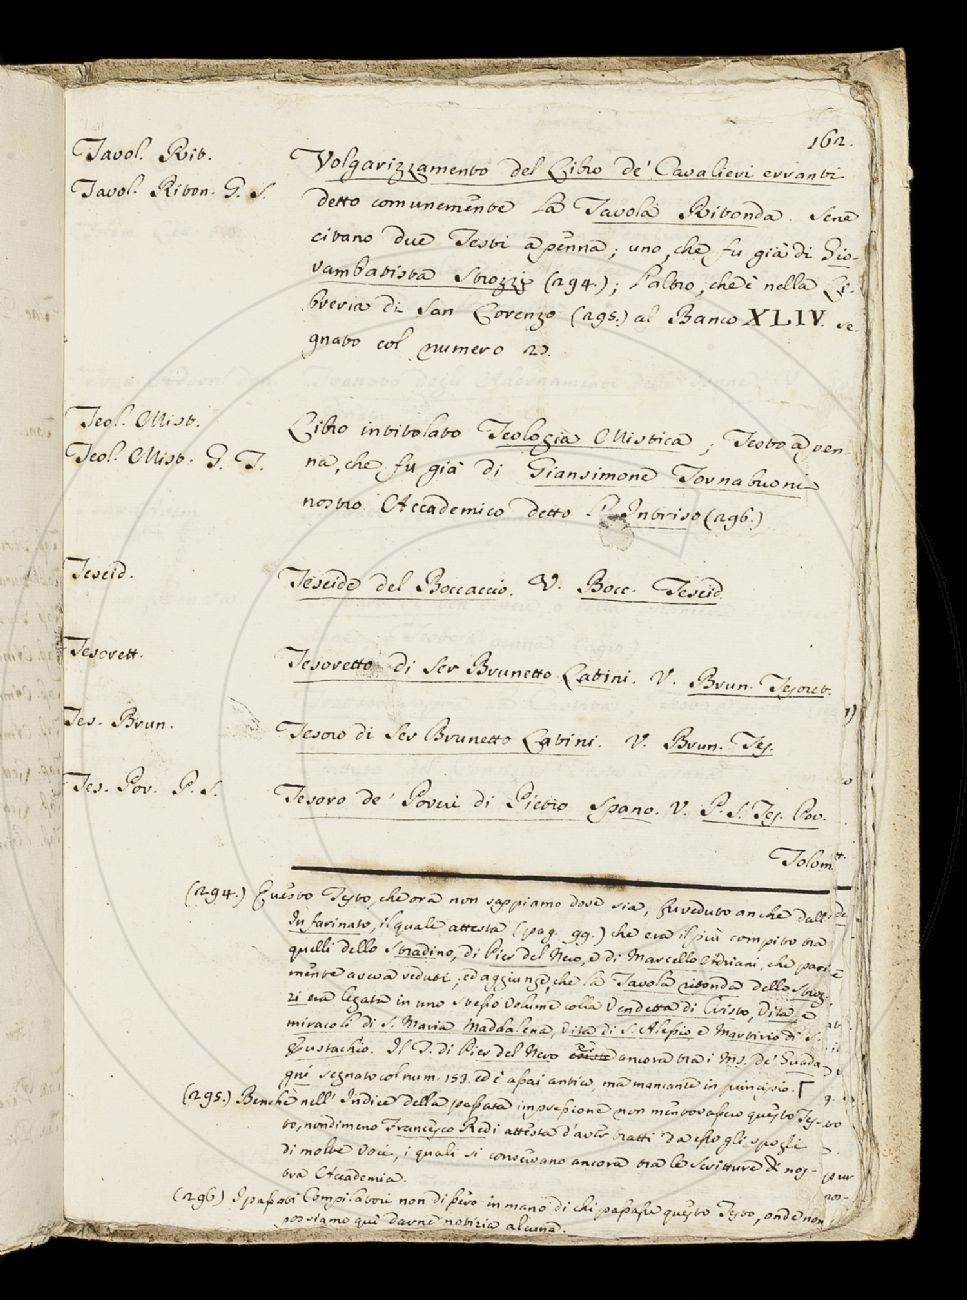 162.
Tavol. Rit. Volgarizzamento del Libro de' Cavalieri erranti
Tavol. Riton. G. S. detto comunemente la Tavola Ritonda. Sene
citano due Testi a penna; uno, che fu già di Gio-
vambatista Strozzi (294.); l'altro, che è nella Li-
breria di San Lorenzo (295.) al Banco XLIV. se-
gnato col numero 2.
Teol. Mist. Libro intitolato Teologia Mistica; Testo a pen-
Teol. Mist. G. T. na, che fu già di Giansimone Tornabuoni
nostro Accademico detto l'Intriso (296.)
Teseid. Teseide del Boccaccio. V. Bocc. Teseid.
Tesorett. Tesoretto di Ser Brunetto Latini. V. Brun. Tesoret.
Tes. Brun. Tesoro di Ser Brunetto Latini. V. Brun. Tes.
Tes. Pov. P. S. Tesoro de' Poveri di Pietro Spano. V. P. S. Tes. Pov.
Tolom.
(294.) Questo Testo, che ora non sappiamo dove sia, fu veduto anche dall'
Infarinato, il quale attesta (pag. 99.) che era il più compito tra
quelli dello Stradino, di Pier del Nero, e di Marcello Adriani, che pari
mente aveva veduti; ed aggiunge, che la Tavola ritonda dello Stroz-
zi era legata in uno stesso Volume colla Vendetta di Cristo, Vita e
miracoli di S. Maria Maddalena, Vita di S. Alessio e Martirio di S.
Eustachio. Il T. di Pier del Nero ancora tra i MS. de' Guada
gni segnato col num. 153. ed è assai antico, ma mancante in principio.
(295.) Benchè nell'Indice della passata impressione non mentovassero questo Tes-
to, nondimeno Francesco Redi attesta d'aver tratti da esso gli spogli
di molte voci, i quali si conservano ancora tra le Scritture di nos-
tra Accademia.
(296) I passati Compilatori non dissero in mano di chi passasse questo Testo, onde non
possiamo quì darne notizia alcuna.